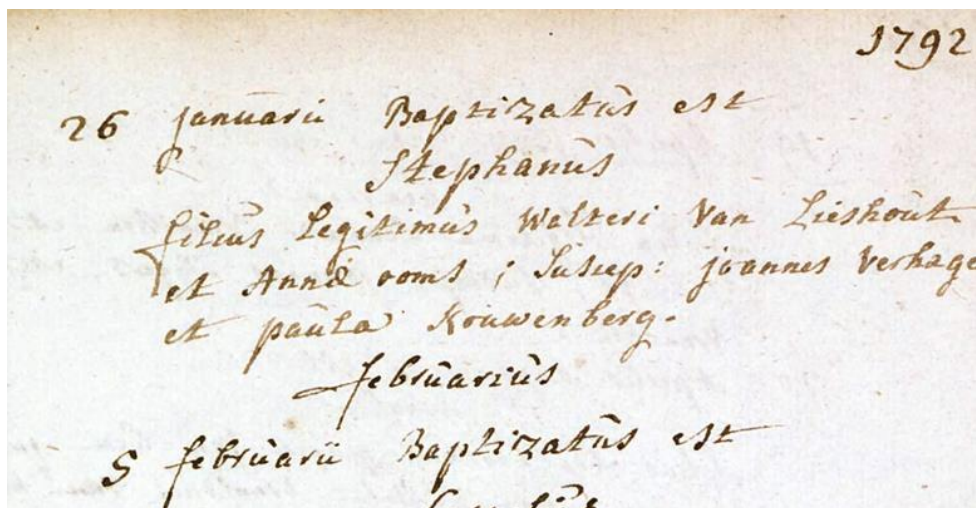 1792
26 januarii Baptizatus est
Stephanus
filius Legitimus Walteri Van Lieshout
et Annæ roms ; Suscep: joannes Verhage
et paula Kouwenberg.
februarius
5 februarii Baptizatus est